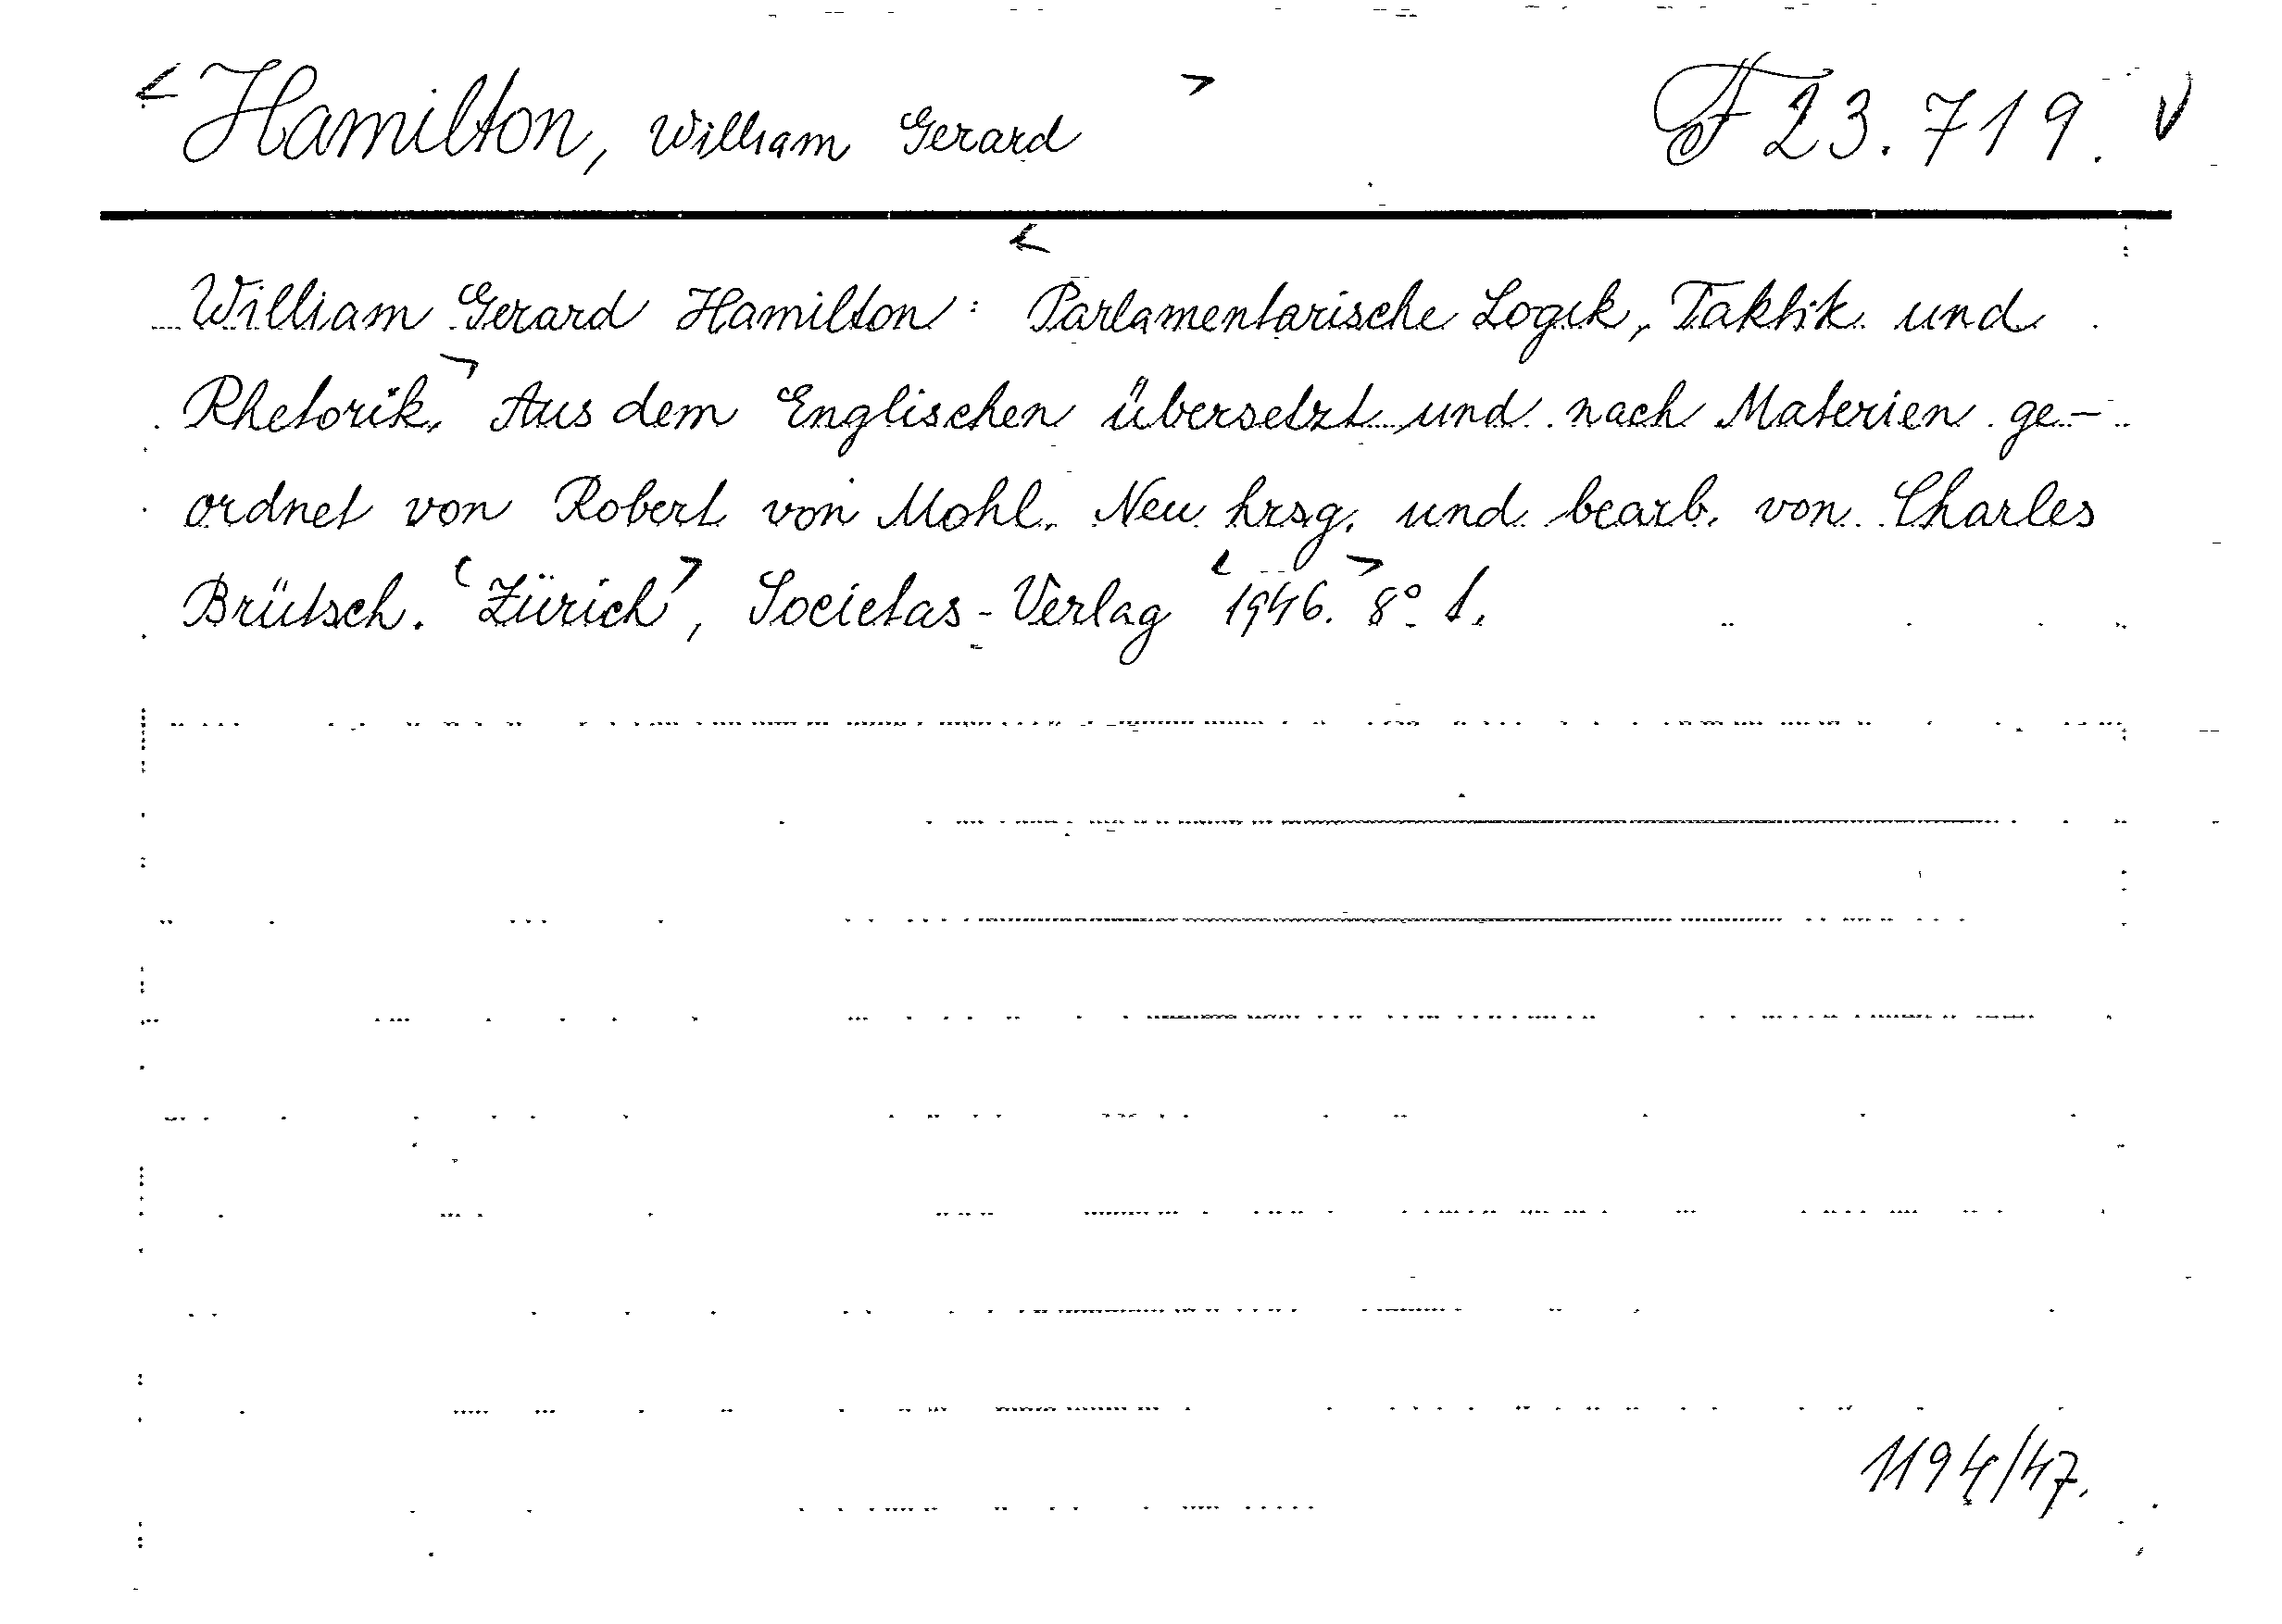 <Hamilton, William Gerard> F 23.719. v
William Gerard Hamilton: <Parlamentarische Logik, Taktik und
Rhetorik.> Aus dem Englischen übersetzt und nach Materien ge-
ordnet von Robert von Mohl. Neu hrsg. und bearb. von Charles
Brütsch. <Zürich>, Societas-Verlag <1946.> 8° 1.
1194/47.